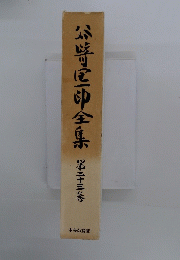 谷崎潤一郎全集
第二十三巻